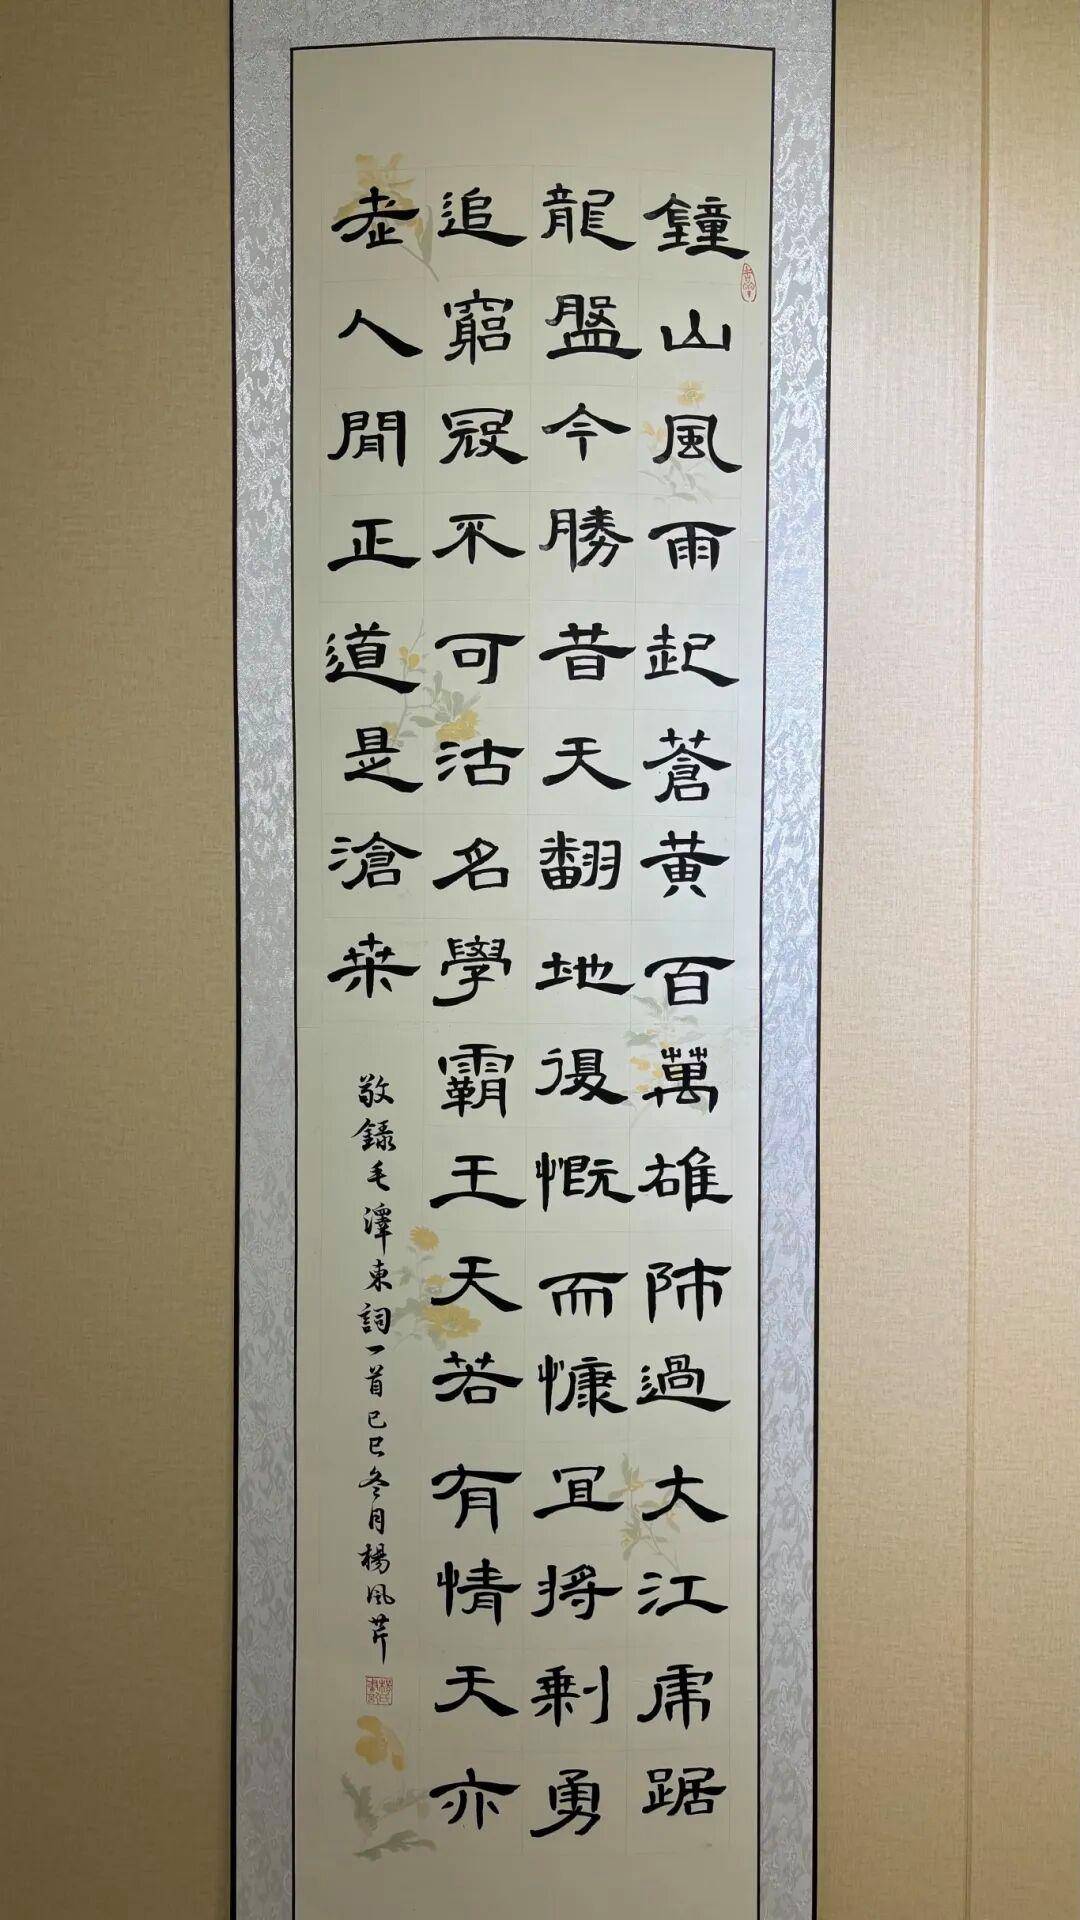 鐘山風雨起蒼黃百萬雄師過大江虎踞
龍盤今勝昔天翻地覆慨而慷宜將剩勇
追窮寇不可沽名學霸王天若有情天亦
老人間正道是滄桒
敬錄毛澤東詞一首己巳冬月楊風芹